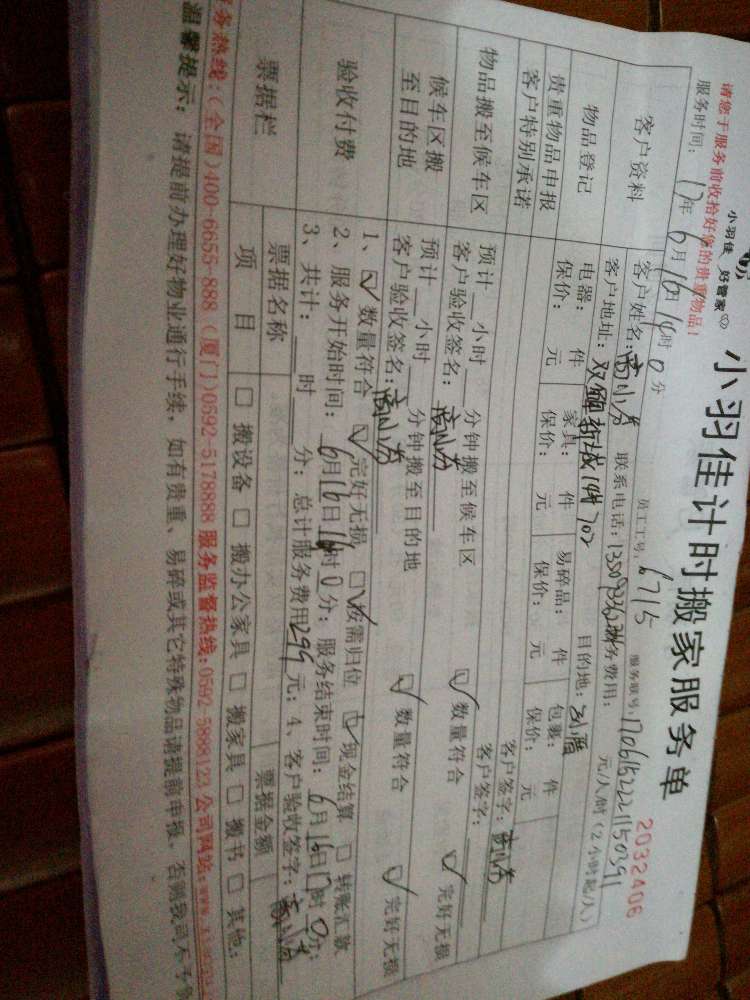 小羽佳 好管家
小羽佳计时搬家服务单
2032406
请您于服务前收拾好您的贵重物品!
员工工号: 6715
服务联号: 1706152221150391
服务时间: 17年 6月 16日 14时 0分
客户资料
客户姓名: 联系电话: 服务费用: 元/人/时(2小时起/人)
客户地址: 目的地:
物品登记
电器: 件 家具: 件 易碎品: 件 包裹: 件
保价: 元 保价: 元 保价: 元 保价: 元
贵重物品申报
客户签字:
客户特别承诺
客户签字:
物品搬至候车区
预计 小时 分钟搬至候车区
客户验收签名: ☑数量符合 ☑完好无损
候车区搬至目的地
预计 小时 分钟搬至目的地
客户验收签名: ☑数量符合 ☑完好无损
验收付费
1、☑数量符合 ☑完好无损 ☑按需归位 ☑现金结算 □转账汇款
2、服务开始时间: 6月16日 14时 0分; 服务结束时间: 6月16日17时 0分;
3、共计: 时 分; 总计服务费用299元; 4、客户验收签字:
票据栏
票据名称 票据金额
项目 □搬设备 □搬办公家具 □搬家具 □搬书 □其他:
服务热线:(全国)400-6655-888 (厦门)0592-5178888 服务监督热线:0592-5888123 公司网站:
温馨提示: 请提前办理好物业通行手续, 如有贵重、易碎或其它特殊物品请提前申报, 否则我司不予